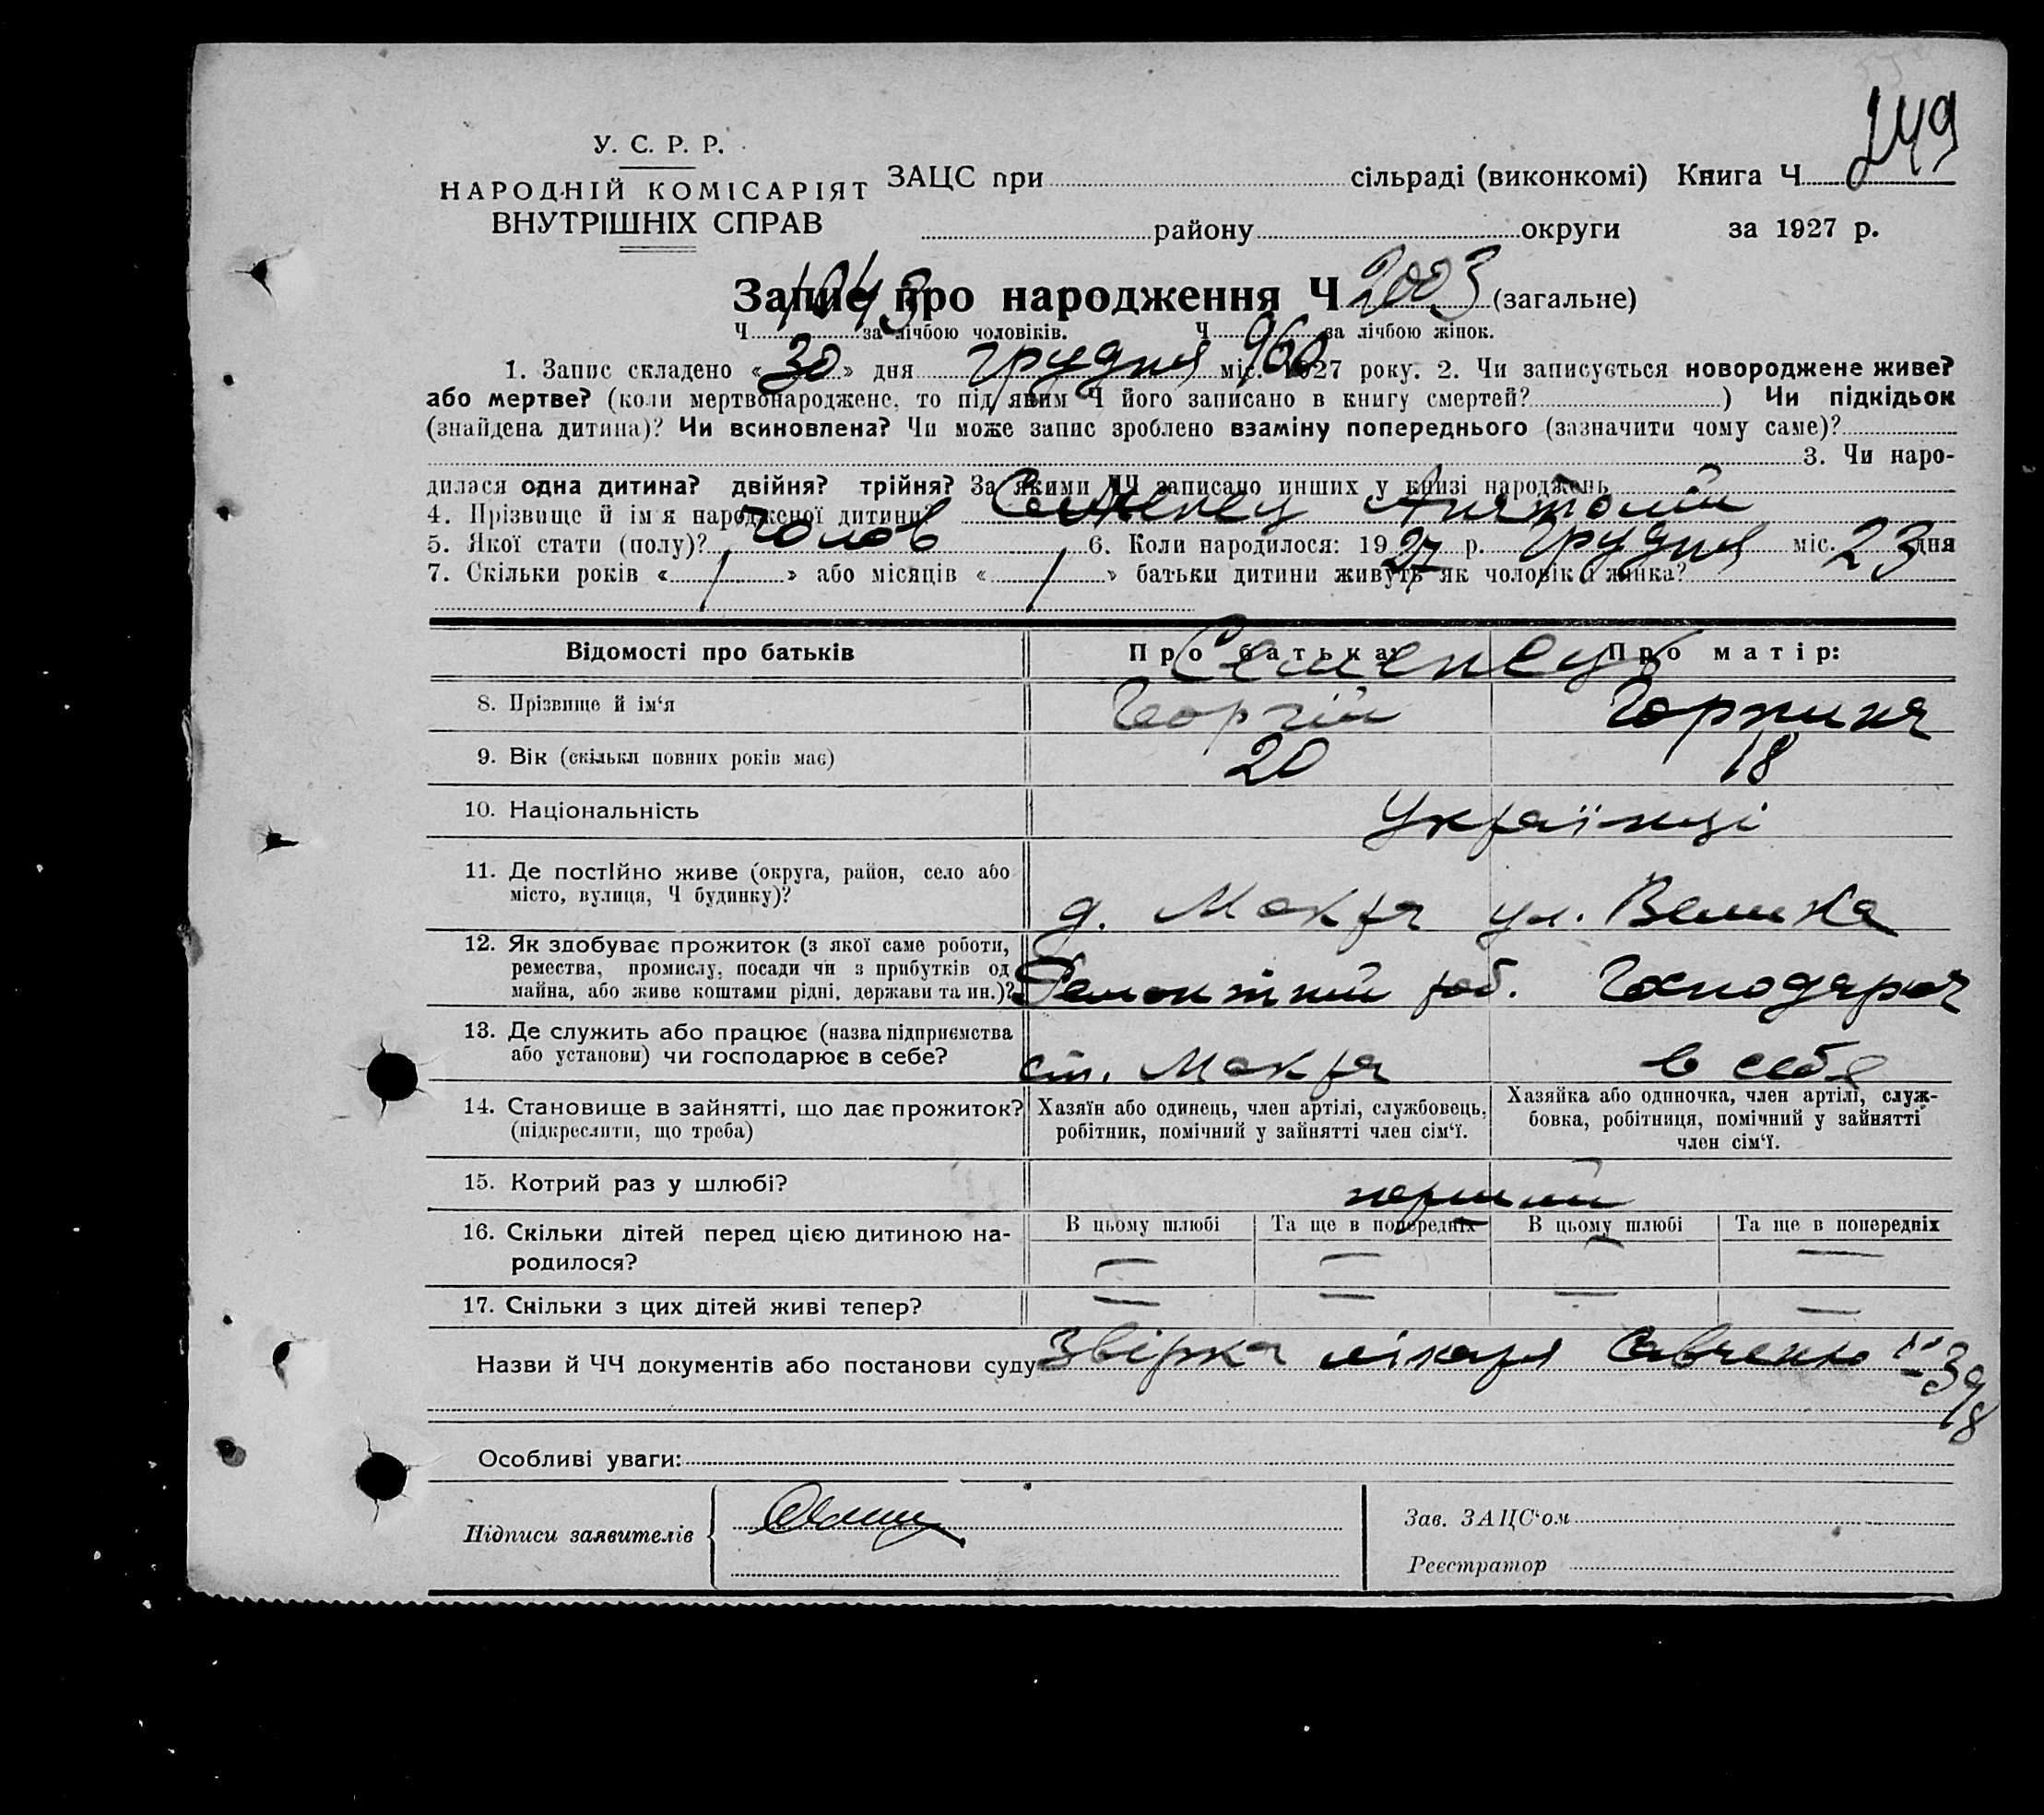 249
У. С. Р. Р.
НАРОДНІЙ КОМІСАРІЯТ
ВНУТРІШНІХ СПРАВ
ЗАЦС при сільраді (виконкомі) Книга Ч
району округи за 1927 р.
Запис про народження Ч 2003 (загальне)
Ч 1043 за лічбою чоловіків. Ч 960 за лічбою жінок.
1. Запис складено « 30 » дня грудня міс. 1927 року. 2. Чи записується новороджене живе?
або мертве? (коли мертвонароджене, то під яким Ч його записано в книгу смертей? ) Чи підкідьок
(знайдена дитина)? Чи всиновлена? Чи може запис зроблено взаміну попереднього (зазначити чому саме)?
3. Чи наро-
дилася одна дитина? двійня? трійня? За якими ЧЧ записано инших у книзі народжень
4. Прізвище й ім'я народженої дитини Семенец Анатолій
5. Якої стати (полу)? чолов 6. Коли народилося: 1927 р. грудня міс. 23 дня
7. Скільки років « / » або місяців « / » батьки дитини живуть як чоловік і жінка?
Відомості про батьків Про батька: Про матір:
Семенец
8. Прізвище й ім‘я Георгій Горпина
9. Вік (скільки повних років має) 20 18
10. Національність Українці
11. Де постійно живе (округа, район, село або
місто, вулиця, Ч будинку)? д. Мокра ул. Велика
12. Як здобуває прожиток (з якої саме роботи,
ремества, промислу, посади чи з прибутків од
майна, або живе коштами рідні, держави та ин.)? Ремонтний роб. Господарює
13. Де служить або працює (назва підприємства
або установи) чи господарює в себе? ст. Мокра в себе
14. Становище в зайнятті, що дає прожиток?
(підкреслити, що треба)
Хазяїн або одинець, член артілі, службовець,
робітник, помічний у зайнятті член сім‘ї.
Хазяйка або одиночка, член артілі, служ-
бовка, робітниця, помічний у зайнятті
член сім‘ї.
15. Котрий раз у шлюбі? перший
16. Скільки дітей перед цією дитиною на-
родилося?
В цьому шлюбі Та ще в попередніх В цьому шлюбі Та ще в попередніх
— — — —
17. Скільки з цих дітей живі тепер? — — — —
Назви й ЧЧ документів або постанови суду лікаря Савченко
Особливі уваги:
Підписи заявителів
Зав. ЗАЦС‘ом
Реєстратор